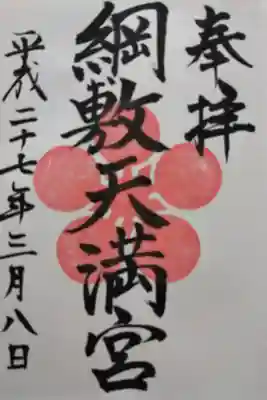 奉拝
綱敷天満宮
平成二十七年三月八日